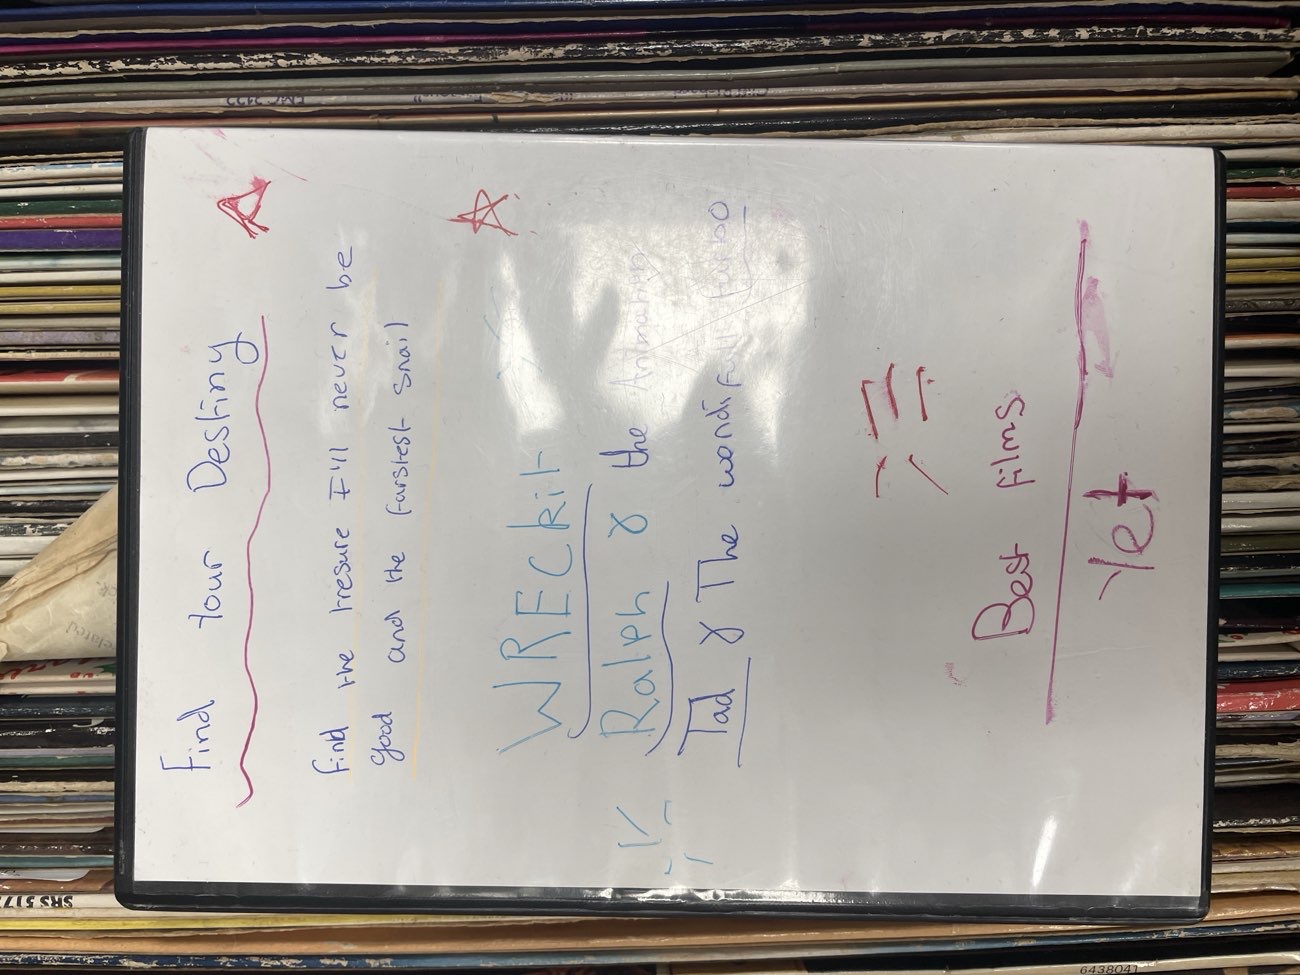 Find Your Destiny
find the tresure I'll never be
good and the farstest snail
WRECkit
Ralph & the Animation
Tad & The wondifull turbo
Best films
Yet
SRS 517
6438041